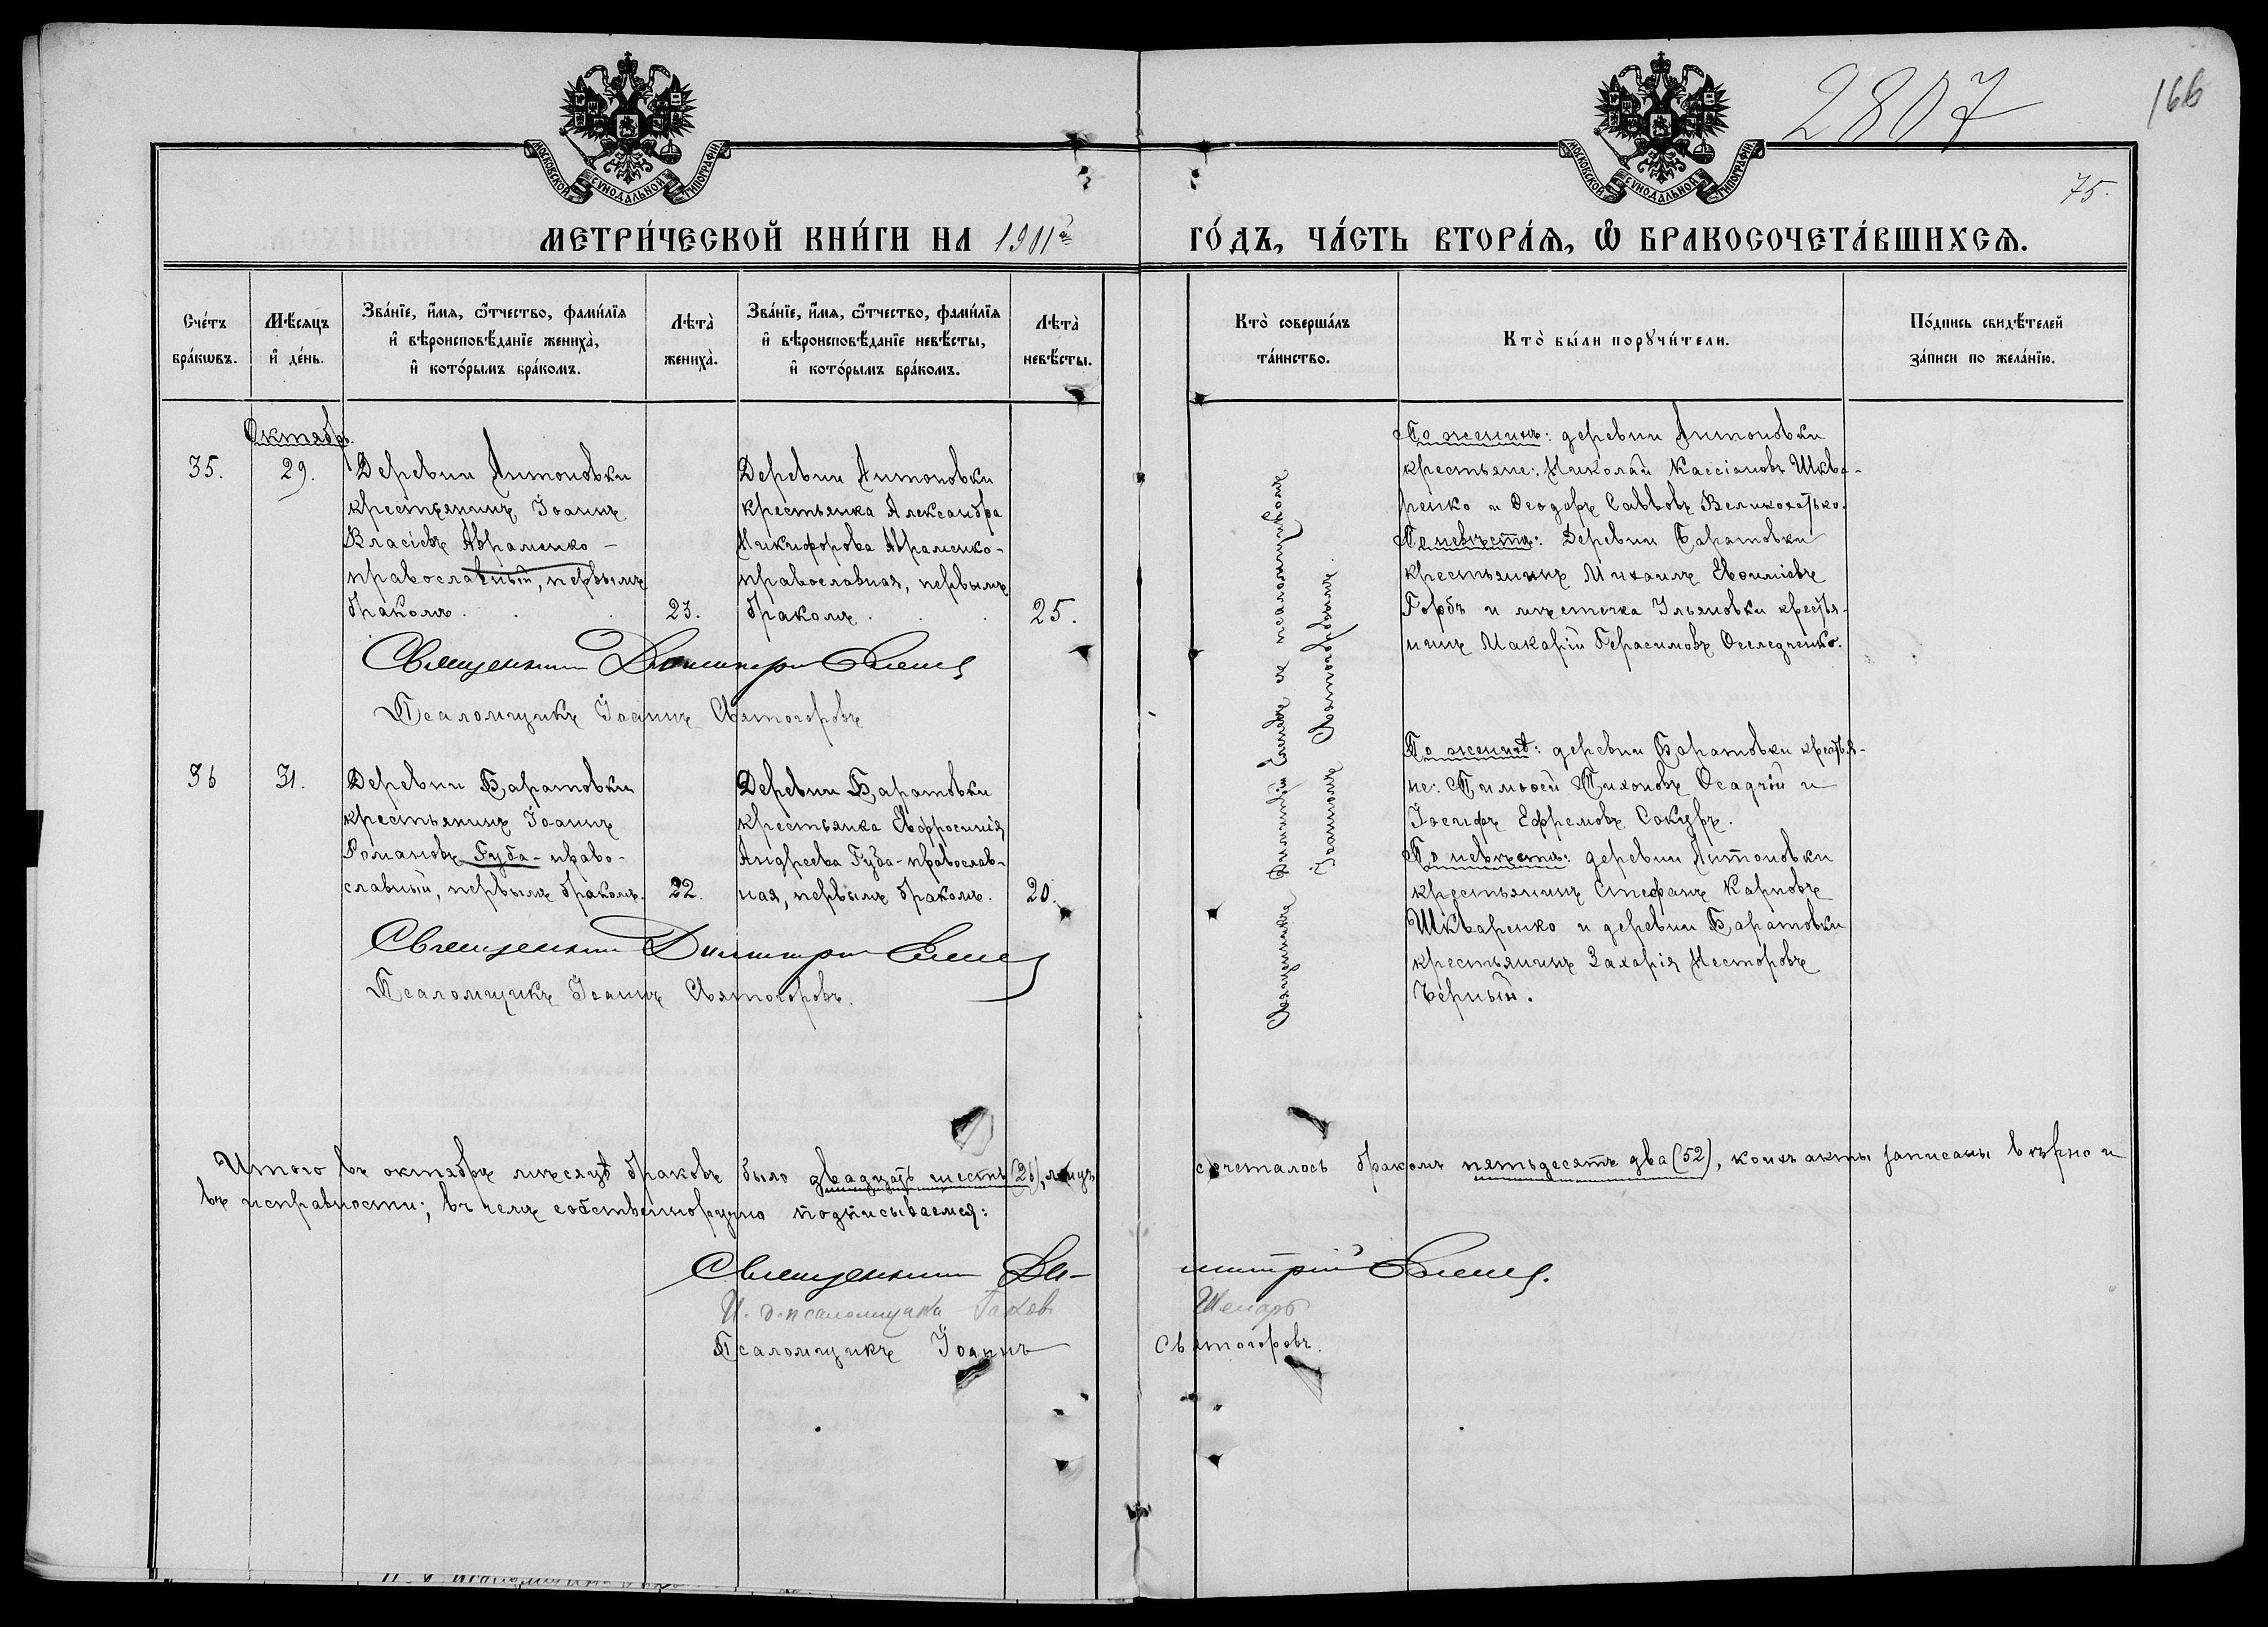 2807
166
75.
МОСКОВСКОЙ СѴНОДАЛЬНОЙ ТИПОГРАФІИ
МОСКОВСКОЙ СѴНОДАЛЬНОЙ ТИПОГРАФІИ
МЕТРИ́ЧЕСКОЙ КНИ́ГИ НА 1911й ГО́ДЪ, ЧА́СТЬ ВТОРА́Ѧ, Ѽ БРАКОСОЧЕТА́ВШИХСѦ.
Сче́тъ
бра́кѡвъ.
Мѣ́сяцъ
и҆ де́нь.
Зва́нїе, и҆́мя, ѻ҆́тчество, фами́лїя
и҆ вѣроисповѣ́данїе жениха̀,
и҆ кото́рымъ бра́комъ.
Лѣта̀
жениха̀.
Зва́нїе, и҆́мя, ѻ҆́тчество, фами́лїя
и҆ вѣроисповѣ́данїе невѣ́сты,
и҆ кото́рымъ бра́комъ.
Лѣта̀
невѣ́сты.
Кто̀ соверша́лъ
та́инство.
Кто̀ бы́ли порꙋчи́тели.
По́дпись свидѣ́телей
за́писи по жела́нїю.
Октябрь.
35.
29.
Деревни Антоновки
крестьянинъ Іоаннъ
Власіевъ Авраменко -
православный, первымъ
бракомъ.
23.
Деревни Антоновки
крестьянка Александра
Никифорова Авраменко -
православная, первымъ
бракомъ.
25.
Священникъ Димитрій
Псаломщикъ Іоаннъ Святогоровъ
Священникъ Димитрій съ псаломщикомъ
Іоанномъ Святогоровымъ.
По женихѣ: деревни Антоновки
крестьяне: Николай Кассіановъ Шква-
ренко и Ѳеодоръ Саввовъ Великохатько.
По невѣстѣ: Деревни Баратовки
крестьянинъ Михаилъ Евѳиміевъ
Горбъ и мѣстечка Ильяновки крестья-
нинъ Макарій Герасимовъ Оселедченко.
36
31.
Деревни Баратовки
крестьянинъ Іоаннъ
Романовъ Губа - право-
славный, первымъ бракомъ.
22.
Деревни Баратовки
крестьянка Евфросинія
Андреева Губа - православ-
ная, первымъ бракомъ.
20.
Священникъ Димитрій
Псаломщикъ Іоаннъ Святогоровъ.
По женихѣ: деревни Баратовки крестья-
не: Тимоѳей Тихоновъ Осадчій и
Іосифъ Ефремовъ Сокуръ.
По невѣстѣ: деревни Антоновки
крестьянинъ Стефанъ Карповъ
Шкваренко и деревни Баратовки
крестьянинъ Захарія Несторовъ
Черный.
Итого въ октябрѣ мѣсяцѣ браковъ было двадцать шесть (26), лицъ сочеталось бракомъ пятьдесятъ два (52), коихъ акты записаны вѣрно и
въ исправности; въ чемъ собственноручно подписываемся:
Священникъ Димитрій
И. д. псаломщика
Псаломщикъ Іоаннъ Святогоровъ.